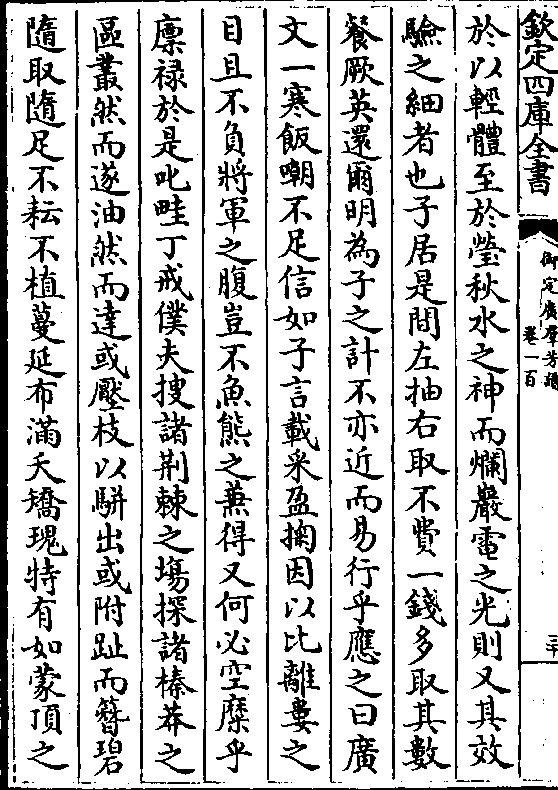 欽定四庫全書
御定廣羣芳譜
卷一百
三十
於以輕體至於瑩秋水之神而爛巖電之光則又其效
驗之細者也子居是間左抽右取不費一錢多取其數
餐厥英還爾明為子之計不亦近而易行乎應之曰廣
文一寒飯嘲不足信如子言載采盈掬因以比離婁之
目且不負將軍之腹豈不魚熊之兼得又何必空糜乎
廩禄於是叱畦丁戒僕夫搜諸荆棘之場探諸榛莽之
區叢然而遂油然而達或壓枝以駢出或附趾而簪碧
隨取隨足不耘不植蔓延布滿夭矯瑰特有如蒙頂之